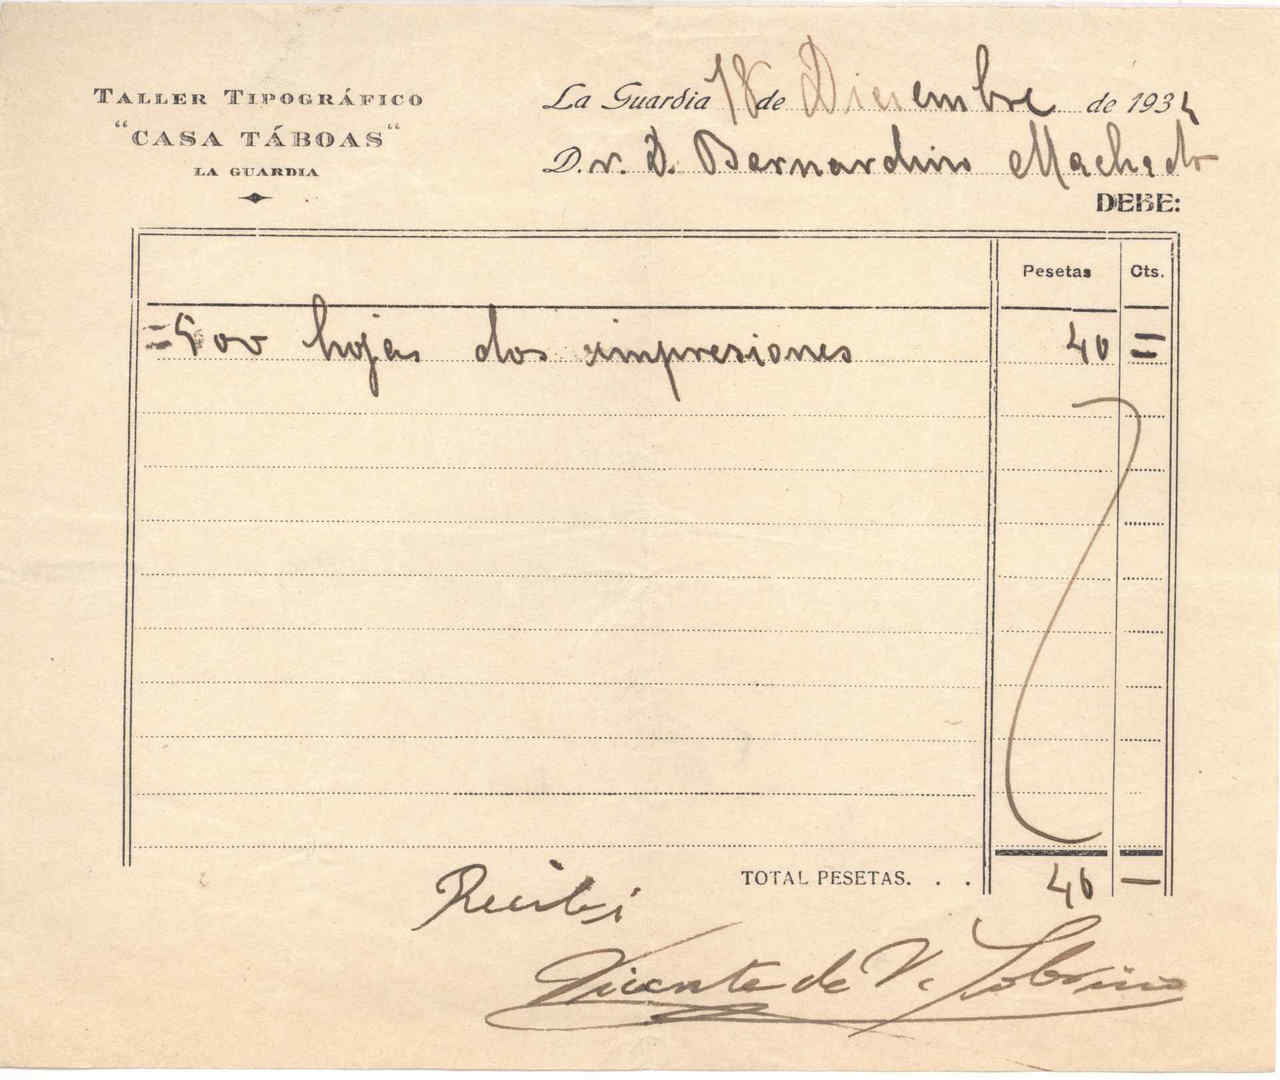 TALLER TIPOGRÁFICO
"CASA TÁBOAS"
LA GUARDIA
La Guardia 18 de Diciembre de 193
D. r. D. Bernardino Machado
DEBE:
Pesetas Cts.
=500 hojas dos impresiones 40 =
TOTAL PESETAS. . . 40 —
Recibi
Vicente de V. Sobrino